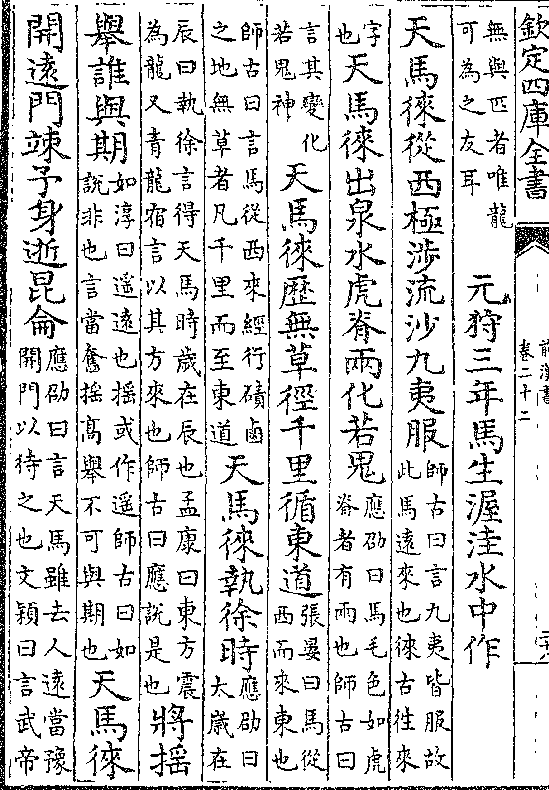 欽定四庫全書
前漢書
卷二十二
無與匹者唯龍
可為之友耳
元狩三年馬生渥洼水中作
天馬徠從西極涉流沙九夷服師古曰言九夷皆服故
此馬遠來也徠古往來
字
也天馬徠出泉水虎脊兩化若鬼應劭曰馬毛色如虎
脊者有兩也師古曰
言其變化
若鬼神天馬徠歷無草徑千里循東道張晏曰馬從
西而來東也
師古曰言馬從西來經行磧鹵
之地無草者凡千里而至東道天馬徠執徐時應劭曰
太歲在
辰曰執徐言得天馬時歲在辰也孟康曰東方震
為龍又青龍宿言以其方來也師古曰應說是也將揺
舉誰與期如淳曰遥遠也揺或作遥師古曰如
說非也言當奮揺高舉不可與期也天馬徠
開遠門竦予身逝昆侖應劭曰言天馬雖去人遠當豫
開門以待之也文穎曰言武帝